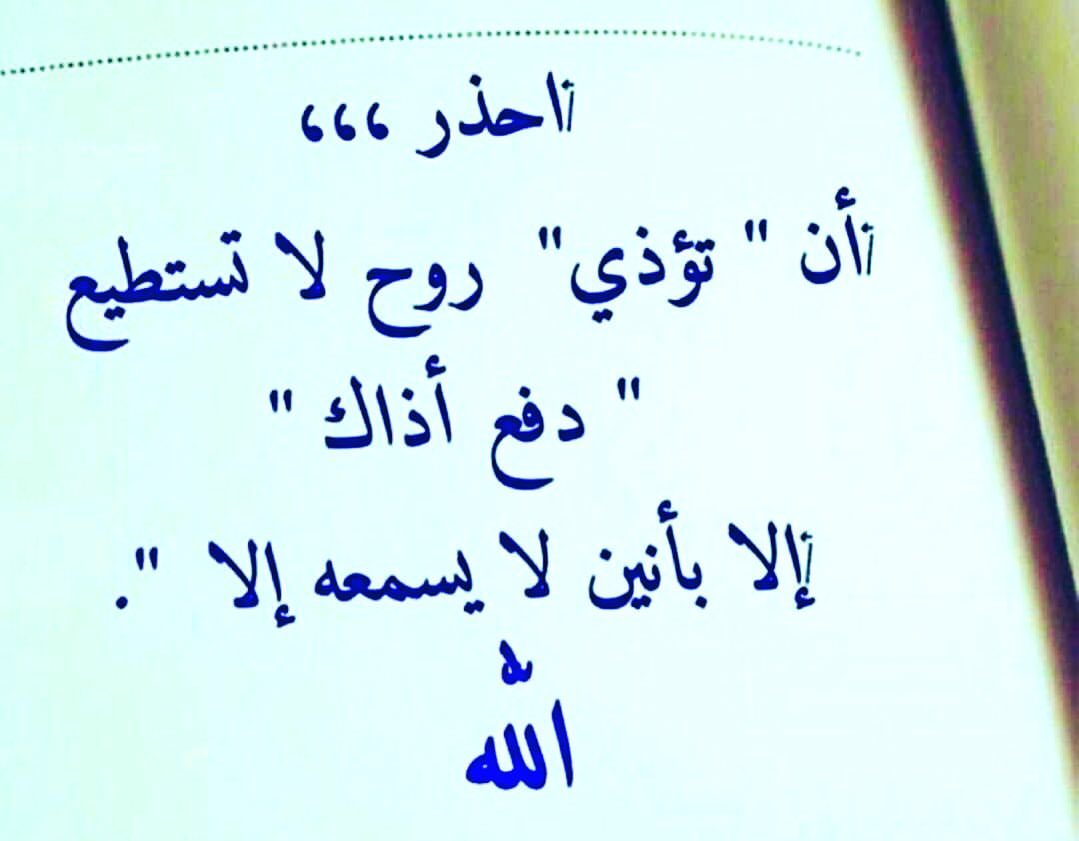 احذر ،،،
أن " تؤذي" روح لا تستطيع
" دفع أذاك "
إلا بأنين لا يسمعه إلا ".
الله